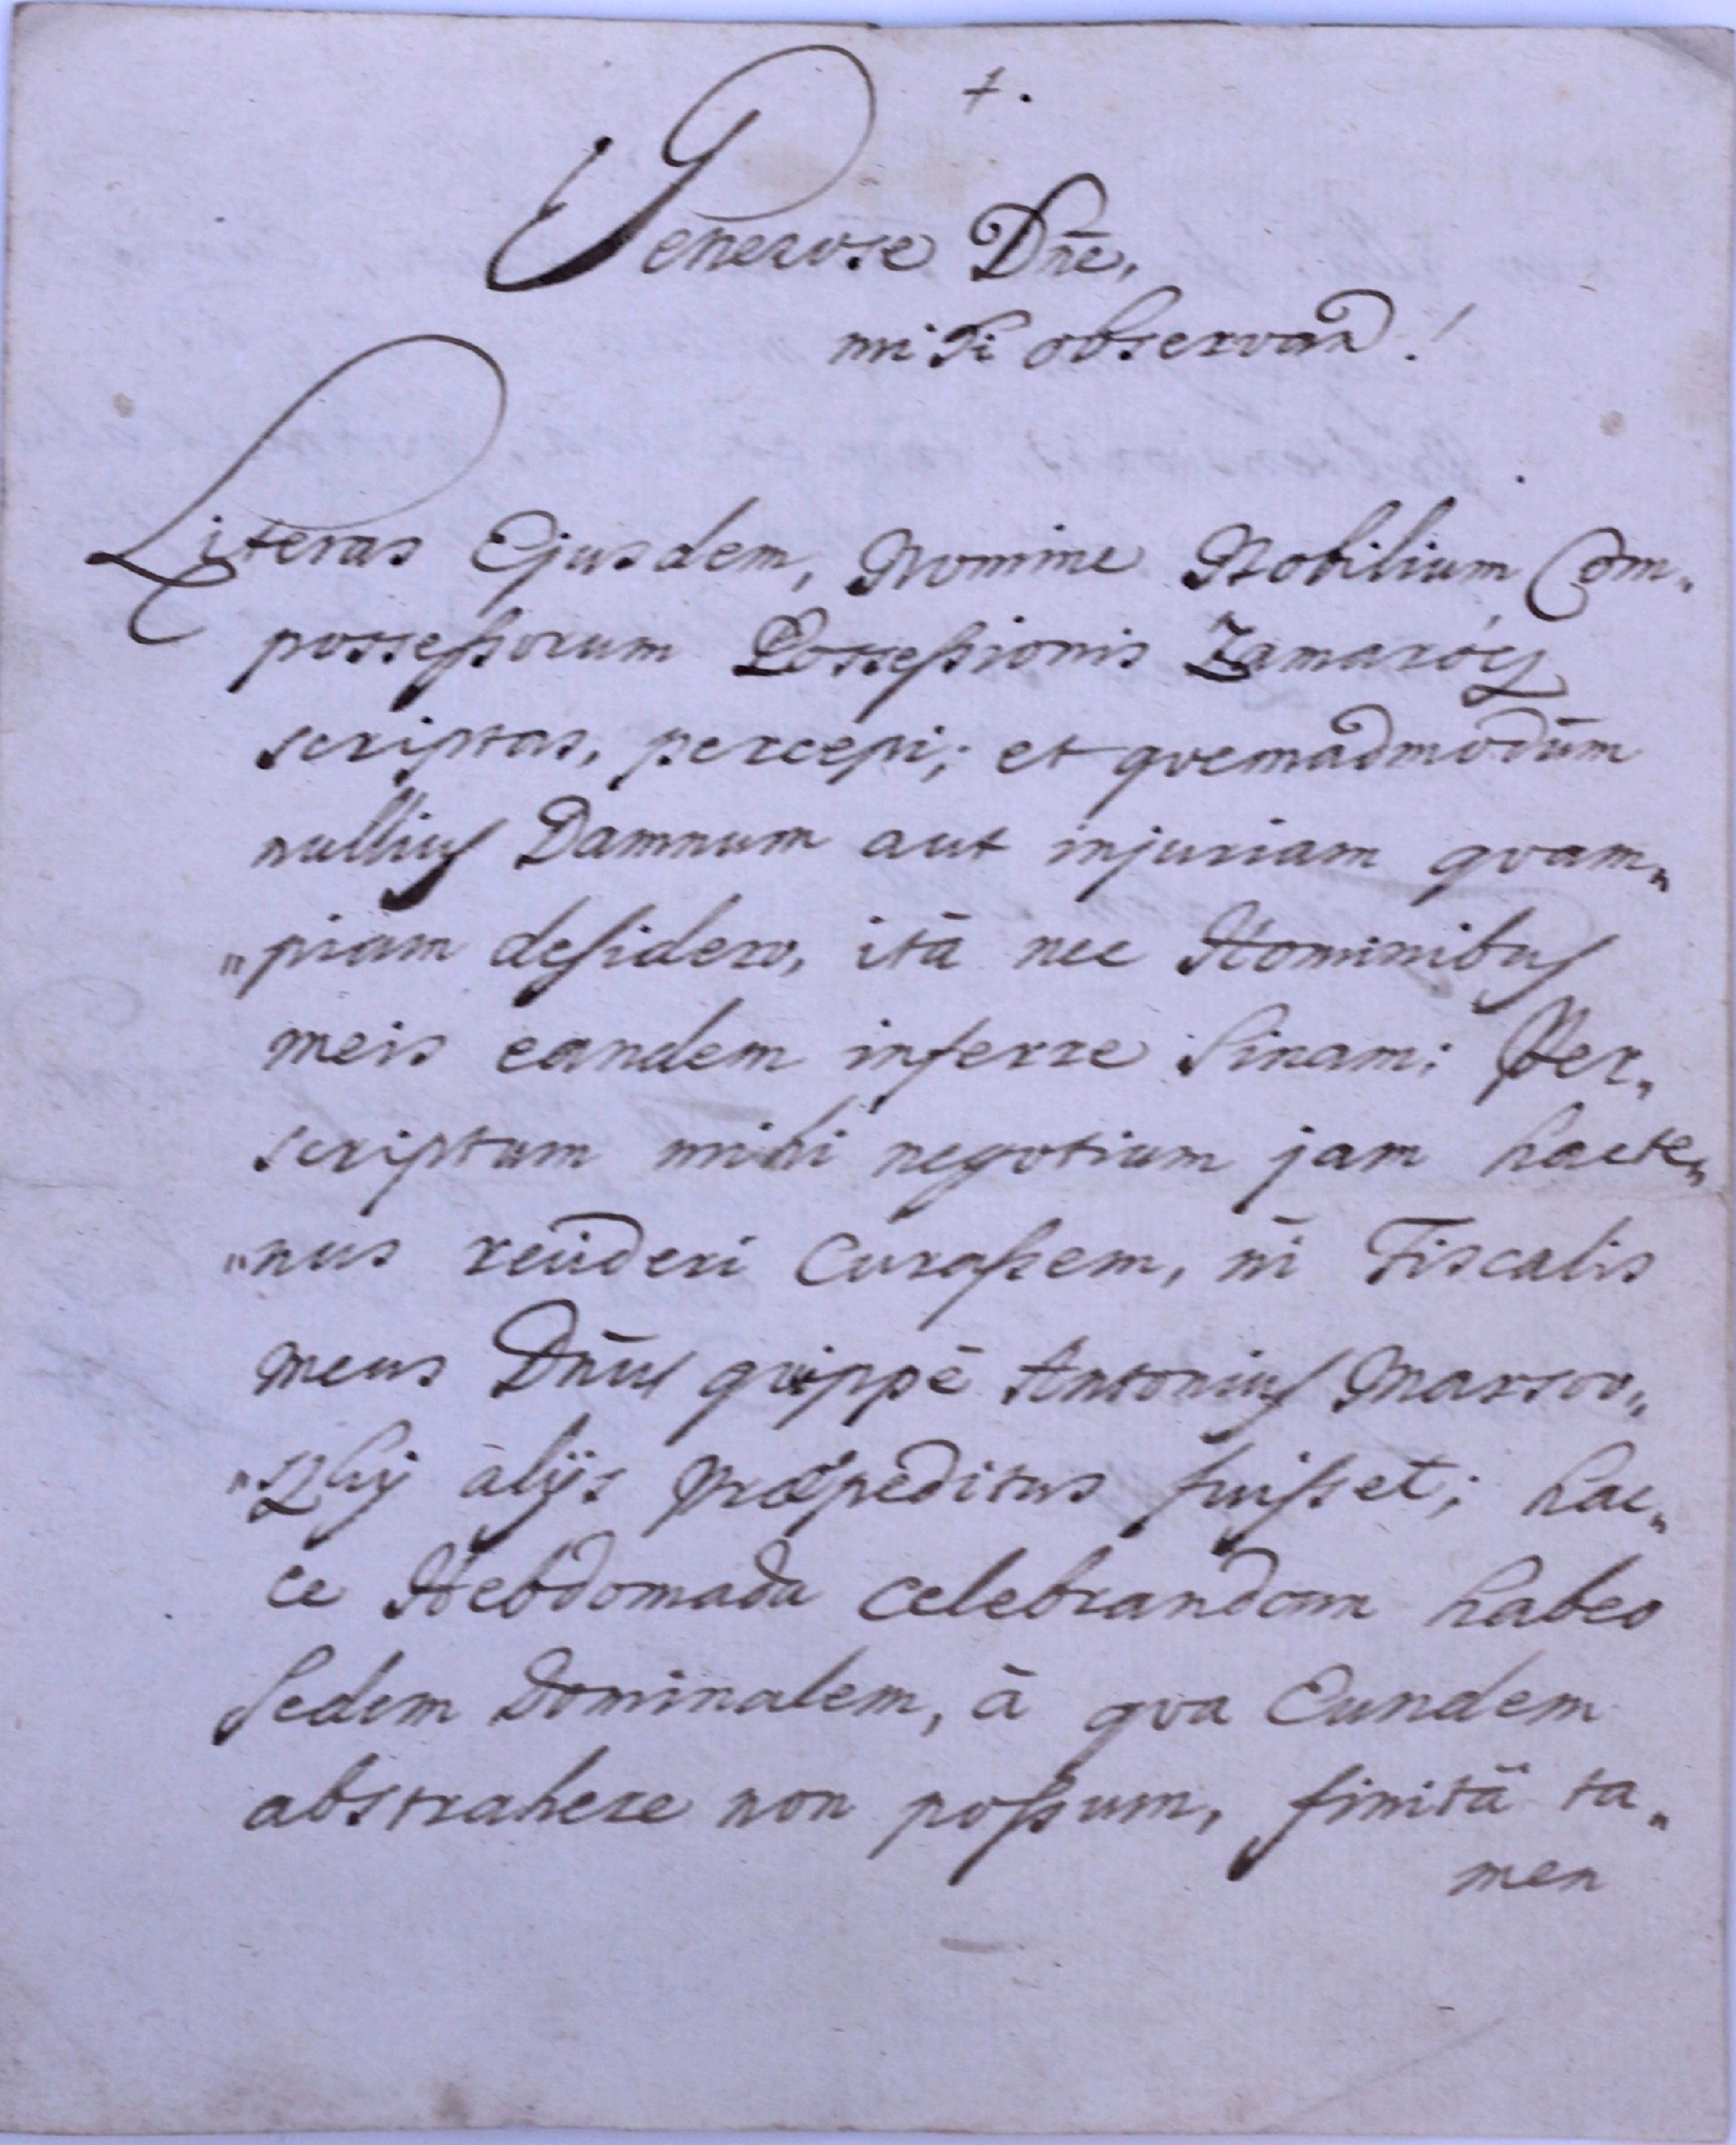 +.
Generose Dn̄e,
mihi observand!
Literas Ejusdem, Nomine Nobilium Com„
possessorum Possessionis Zamarócz
scriptas, percepi; et qvemadmodūm
nullius Damnum aut injuriam qvam„
„piam desidero, itā nec Hominibus
meis eandem inferre sinam: Per„
scriptum mihi negotium jam hacte„
„nus revideri curassem, nī Fiscalis
meus Dn̄us qvippē Antonius Marsov„
„szky āliis praepeditus fuisset; hac„
ce Hebdomada celebrandam habeo
Sedem Dominalem, ā qva Eundem
abstrahere non possum, finitā ta„
men